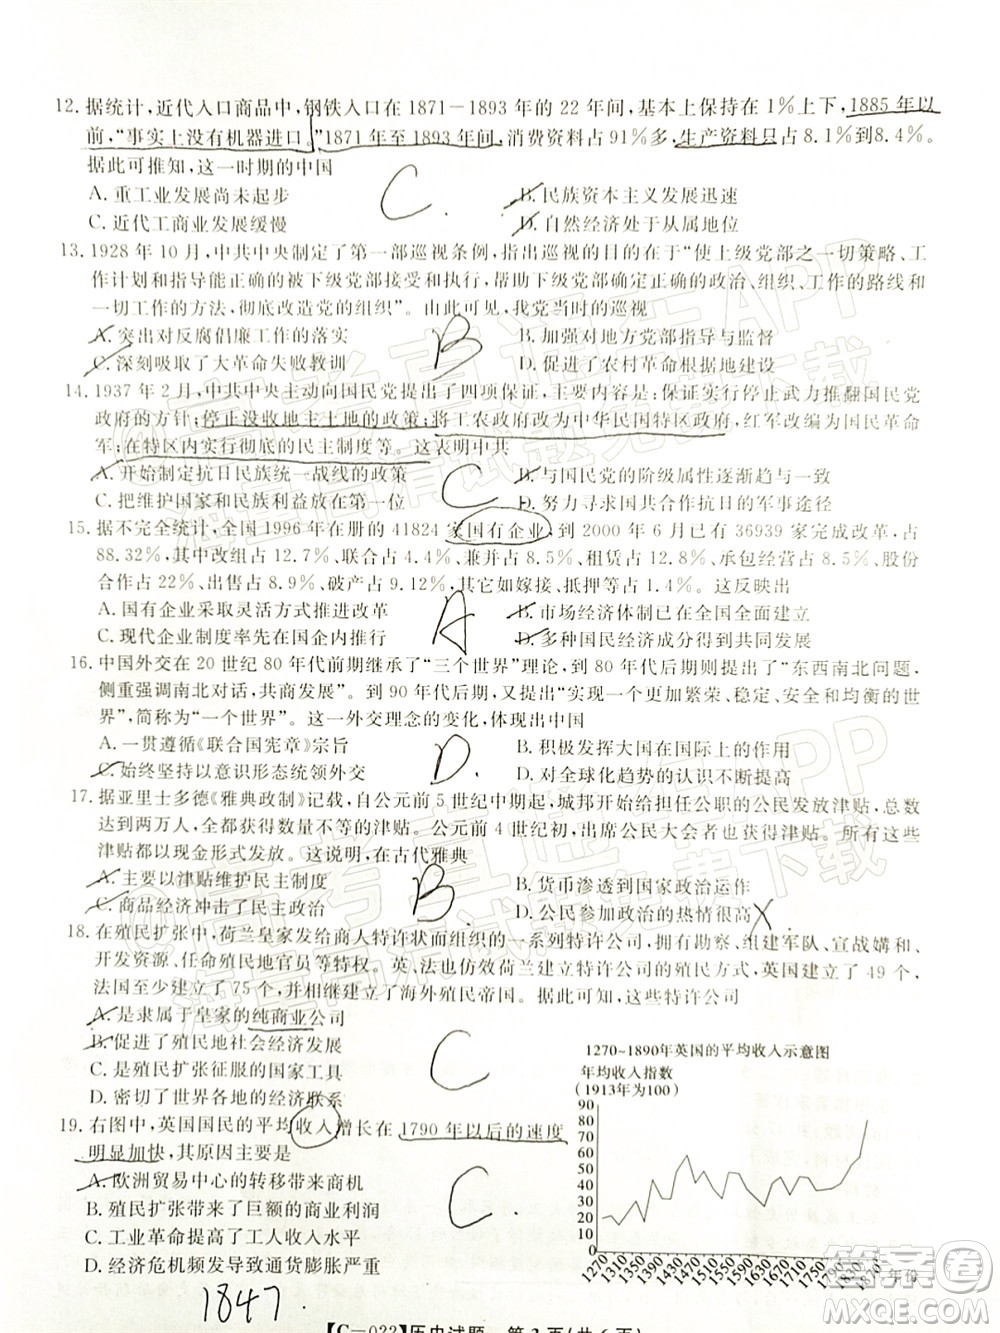 12. 据统计，近代入口商品中，钢铁入口在 1871－1893 年的 22 年间，基本上保持在 1％上下，1885 年以
前，“事实上没有机器进口。”1871 年至 1893 年间，消费资料占 91％多，生产资料只占 8.1％到 8.4％。
据此可推知，这一时期的中国
A. 重工业发展尚未起步 B. 民族资本主义发展迅速
C. 近代工商业发展缓慢 D. 自然经济处于从属地位
C
13. 1928 年 10 月，中共中央制定了第一部巡视条例，指出巡视的目的在于“使上级党部之一切策略、工
作计划和指导能正确的被下级党部接受和执行，能正确的正确的政治、组织、工作的路线和
一切工作的方法，彻底改造党的组织”。由此可见，我党当时的巡视
A. 突出对反腐倡廉工作的部署 B. 加强对地方党部指导与监督
C. 深刻吸取了大革命失败教训 D. 促进了农村革命根据地建设
B
14. 1937 年 2 月，中共中央主动向国民党提出了四项保证，主要内容是：保证实行停止武力推翻国民党
政府的方针；停止没收地主土地的政策；将工农政府改为中华民国特区政府，红军改编为国民革命
军；在特区内实行彻底的民主制度等。这表明中共
A. 开始制定抗日民族统一战线的政策 B. 与国民党的阶级属性逐渐趋与一致
C. 把维护国家和民族利益放在第一位 D. 努力寻求国共合作抗日的军事途径
C
15. 据不完全统计，全国 1996 年在册的 41824 家国有企业，到 2000 年 6 月已有 36939 家完成改革，占
88.32％，其中改组占 12.7％、联合占 4.4％、兼并占 8.5％、租赁占 12.8％、承包经营占 8.5％、股份
合作占 22％、出售占 8.9％、破产占 9.12％，其它如嫁接、抵押等占 6.2％。这反映出
A. 国有企业采取灵活方式推进改革 B. 市场经济体制已在全国全面建立
C. 现代企业制度率先在国企内推行 D. 多种国民经济成分得到共同发展
A
16. 中国外交在 20 世纪 80 年代前期继承了“三个世界”理论，到 80 年代后期则提出了“东西南北问题，
侧重强调南北对话，共商发展”。到 90 年代后期，又提出“实现一个更加繁荣、稳定、安全和均衡的世
界”，简称为“一个世界”。这一外交理念的变化，体现出中国
A. 一贯遵循《联合国宪章》宗旨 B. 积极发挥大国在国际上的作用
C. 始终坚持以意识形态统领外交 D. 对全球化趋势的认识不断提高
D.
17. 据亚里士多德《雅典政制》记载，自公元前 5 世纪中期起，城邦开始给担任公职的公民发放津贴，总数
达到两万人，全都获得数量不等的津贴。公元前 4 世纪初，出席公民大会者也获得津贴。所有这些
津贴都以现金形式发放。这说明，在古代雅典
A. 主要以津贴维护民主制度 B. 货币渗透到国家政治运作
C. 商品经济冲击了民主政治 D. 公民参加政治的热情很高
B
18. 在殖民扩张中，荷兰皇家发给商人特许状而组织的一系列特许公司，拥有勘察、组建军队、宣战媾和、
开发资源、任命殖民地官员等特权。英、法也仿效荷兰建立特许公司的殖民方式，英国建立了 49 个，
法国至少建立了 75 个，并相继建立了海外殖民帝国。据此可知，这些特许公司
A. 是隶属于皇家的纯商业公司
B. 促进了殖民地社会经济发展
C. 是殖民扩张征服的国家工具
D. 密切了世界各地的经济联系
C
19. 右图中，英国国民的平均收入增长在 1790 年以后的速度
明显加快，其原因主要是
A. 欧洲贸易中心的转移带来商机
B. 殖民扩张带来了巨额的商业利润
C. 工业革命提高了工人收入水平
D. 经济危机频发导致通货膨胀严重
C
1847.
1270~1890年英国的平均收入示意图
年均收入指数
（1913年为100）
90
80
70
60
50
40
30
20
10
0
1270 1310 1350 1390 1430 1470 1510 1550 1590 1630 1670 1710 1750 1790 1830 1870 年份
【C－022】历史试题 第 3 页（共 6 页）
答案圈
MXQE.COM